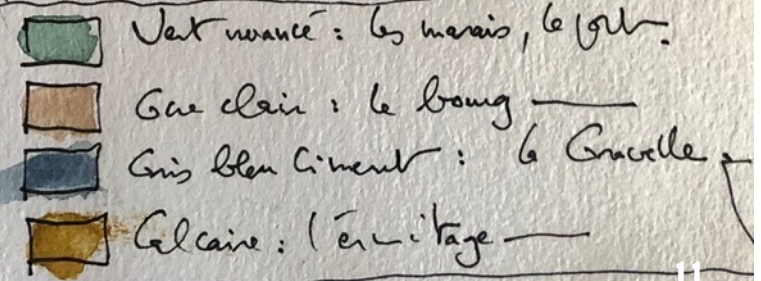 Vert nuancé : les marais, le port.
clair : le bourg
Gris bleu Ciment : la Gravelle
Calcaire : l'ermitage
11